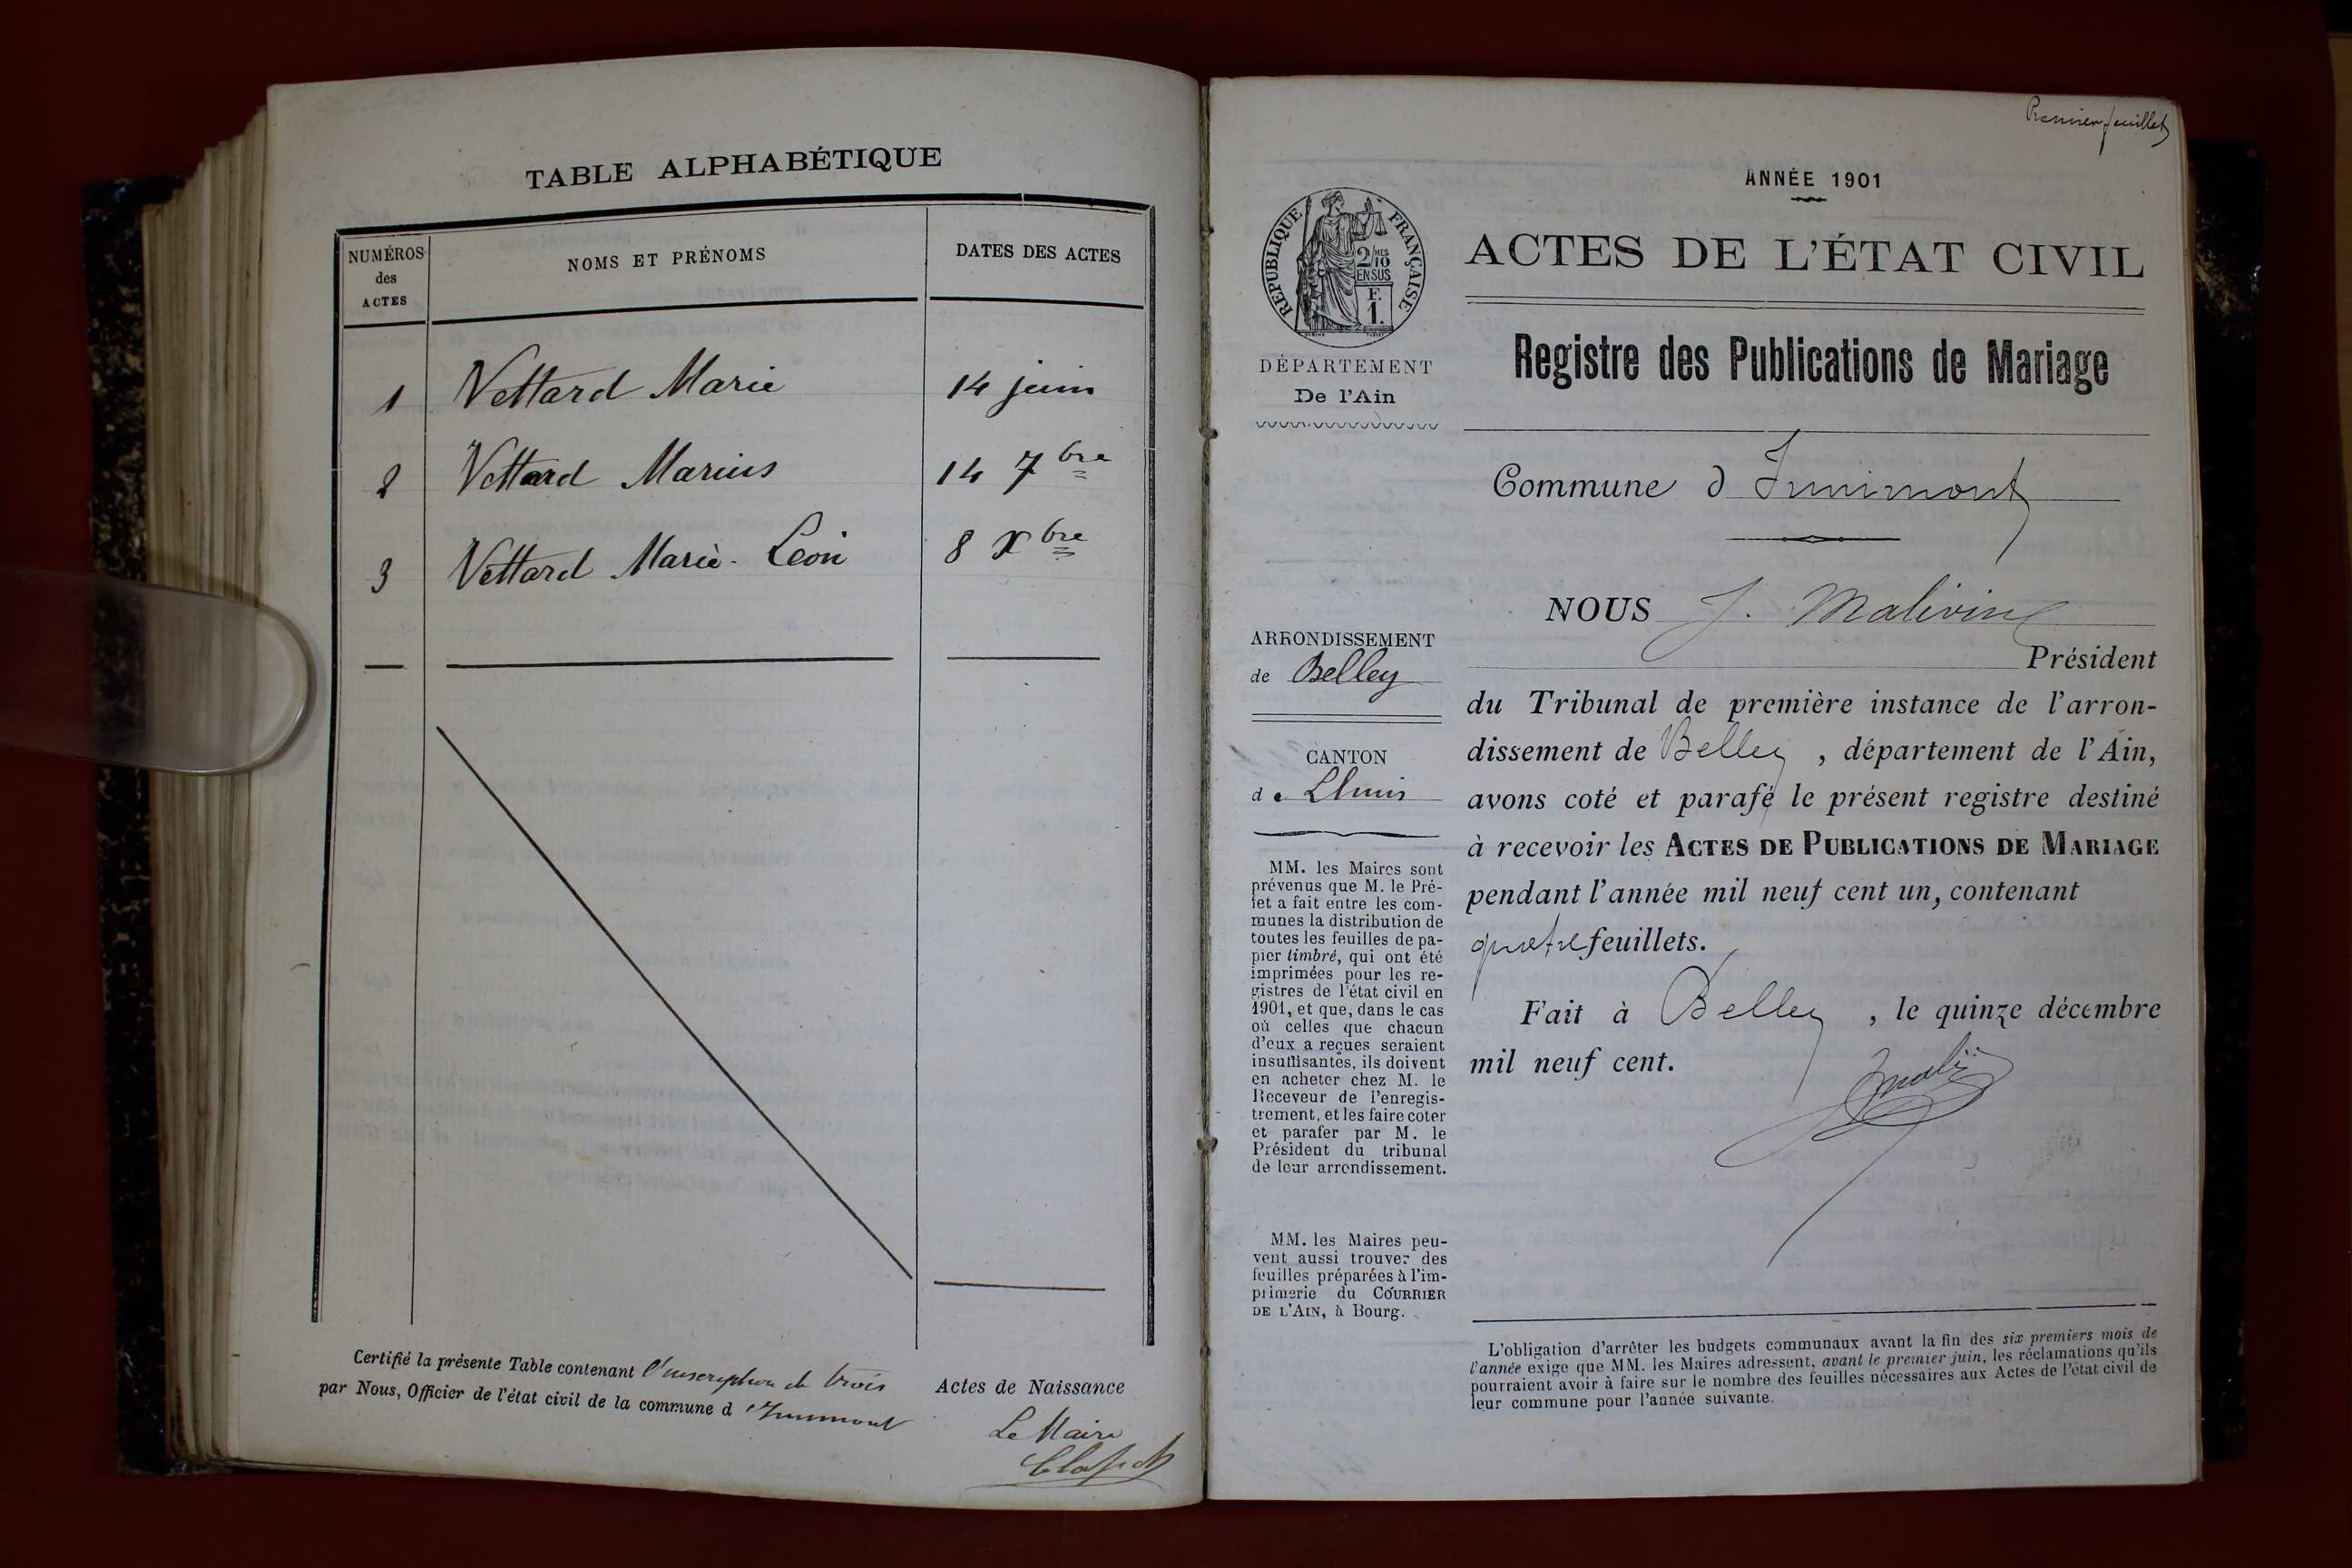 TABLE ALPHABÉTIQUE
NUMÉROS
des
ACTES
NOMS ET PRÉNOMS
DATES DES ACTES
1 Vettard Marie 14 juin
2 Vettard Marius 14 7bre
3 Vettard Marie-Léon 8 Xbre
Certifié la présente Table contenant l'inscription de trois Actes de Naissance
par Nous, Officier de l'état civil de la commune d'Innimont
Le Maire
Premier feuillet
ANNÉE 1901
RÉPUBLIQUE FRANÇAISE
2/10MES
EN SUS
F.
1.
ACTES DE L'ÉTAT CIVIL
Registre des Publications de Mariage
DÉPARTEMENT
De l'Ain
Commune d Innimont
NOUS J. Malivin
Président
ARRONDISSEMENT
de Belley
CANTON
de Lhuis
du Tribunal de première instance de l'arron-
dissement de Belley, département de l'Ain,
avons coté et parafé le présent registre destiné
à recevoir les ACTES DE PUBLICATIONS DE MARIAGE
pendant l'année mil neuf cent un, contenant
quatre feuillets.
Fait à Belley, le quinze décembre
mil neuf cent.
MM. les Maires sont
prévenus que M. le Pré-
fet a fait entre les com-
munes la distribution de
toutes les feuilles de pa-
pier timbré, qui ont été
imprimées pour les re-
gistres de l'état civil en
1901, et que, dans le cas
où celles que chacun
d'eux a reçues seraient
insuffisantes, ils doivent
en acheter chez M. le
Receveur de l'enregis-
trement, et les faire coter
et parafer par M. le
Président du tribunal
de leur arrondissement.
MM. les Maires peu-
vent aussi trouver des
feuilles préparées à l'im-
primerie du COURRIER
DE L'AIN, à Bourg.
L'obligation d'arrêter les budgets communaux avant la fin des six premiers mois de
l'année exige que MM. les Maires adressent, avant le premier juin, les réclamations qu'ils
pourraient avoir à faire sur le nombre des feuilles nécessaires aux Actes de l'état civil de
leur commune pour l'année suivante.